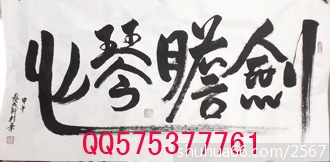 劍膽琴心
甲午
QQ575377761
shuhua66.com/2567